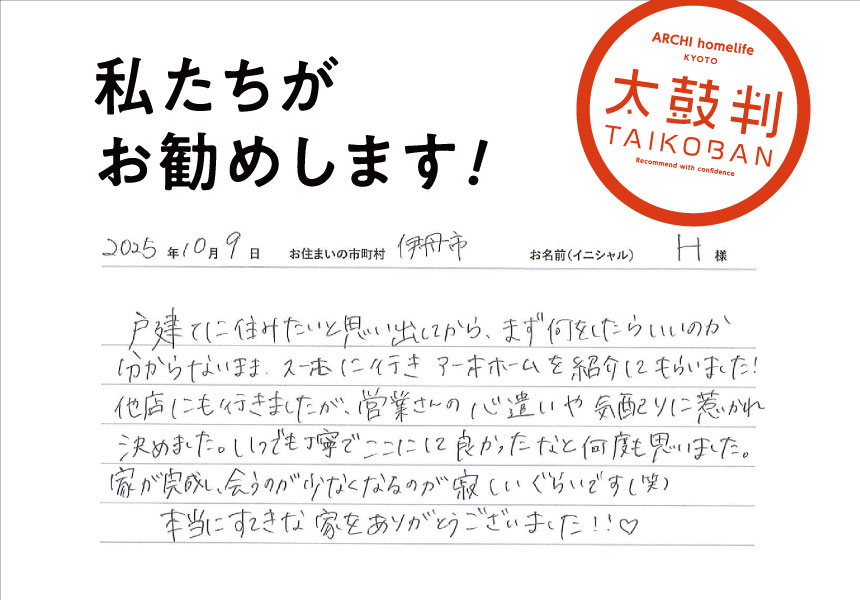 私たちが
お勧めします!
ARCHI homelife
KYOTO
太鼓判
TAIKOBAN
Recommend with confidence
2025年10月9日 お住まいの市町村 伊丹市 お名前(イニシャル) H 様
戸建てに住みたいと思い出してから、まず何をしたらいいのか
分からないまま、スーモに行き アーキホームを紹介してもらいました!
他店にも行きましたが、営業さんの心遣いや気配りに惹かれ
決めました。いつでも丁寧でここにして良かったなと何度も思いました。
家が完成し、会うのが少なくなるのが寂しいぐらいです(笑)
本当にすてきな家をありがとうございました!!♡